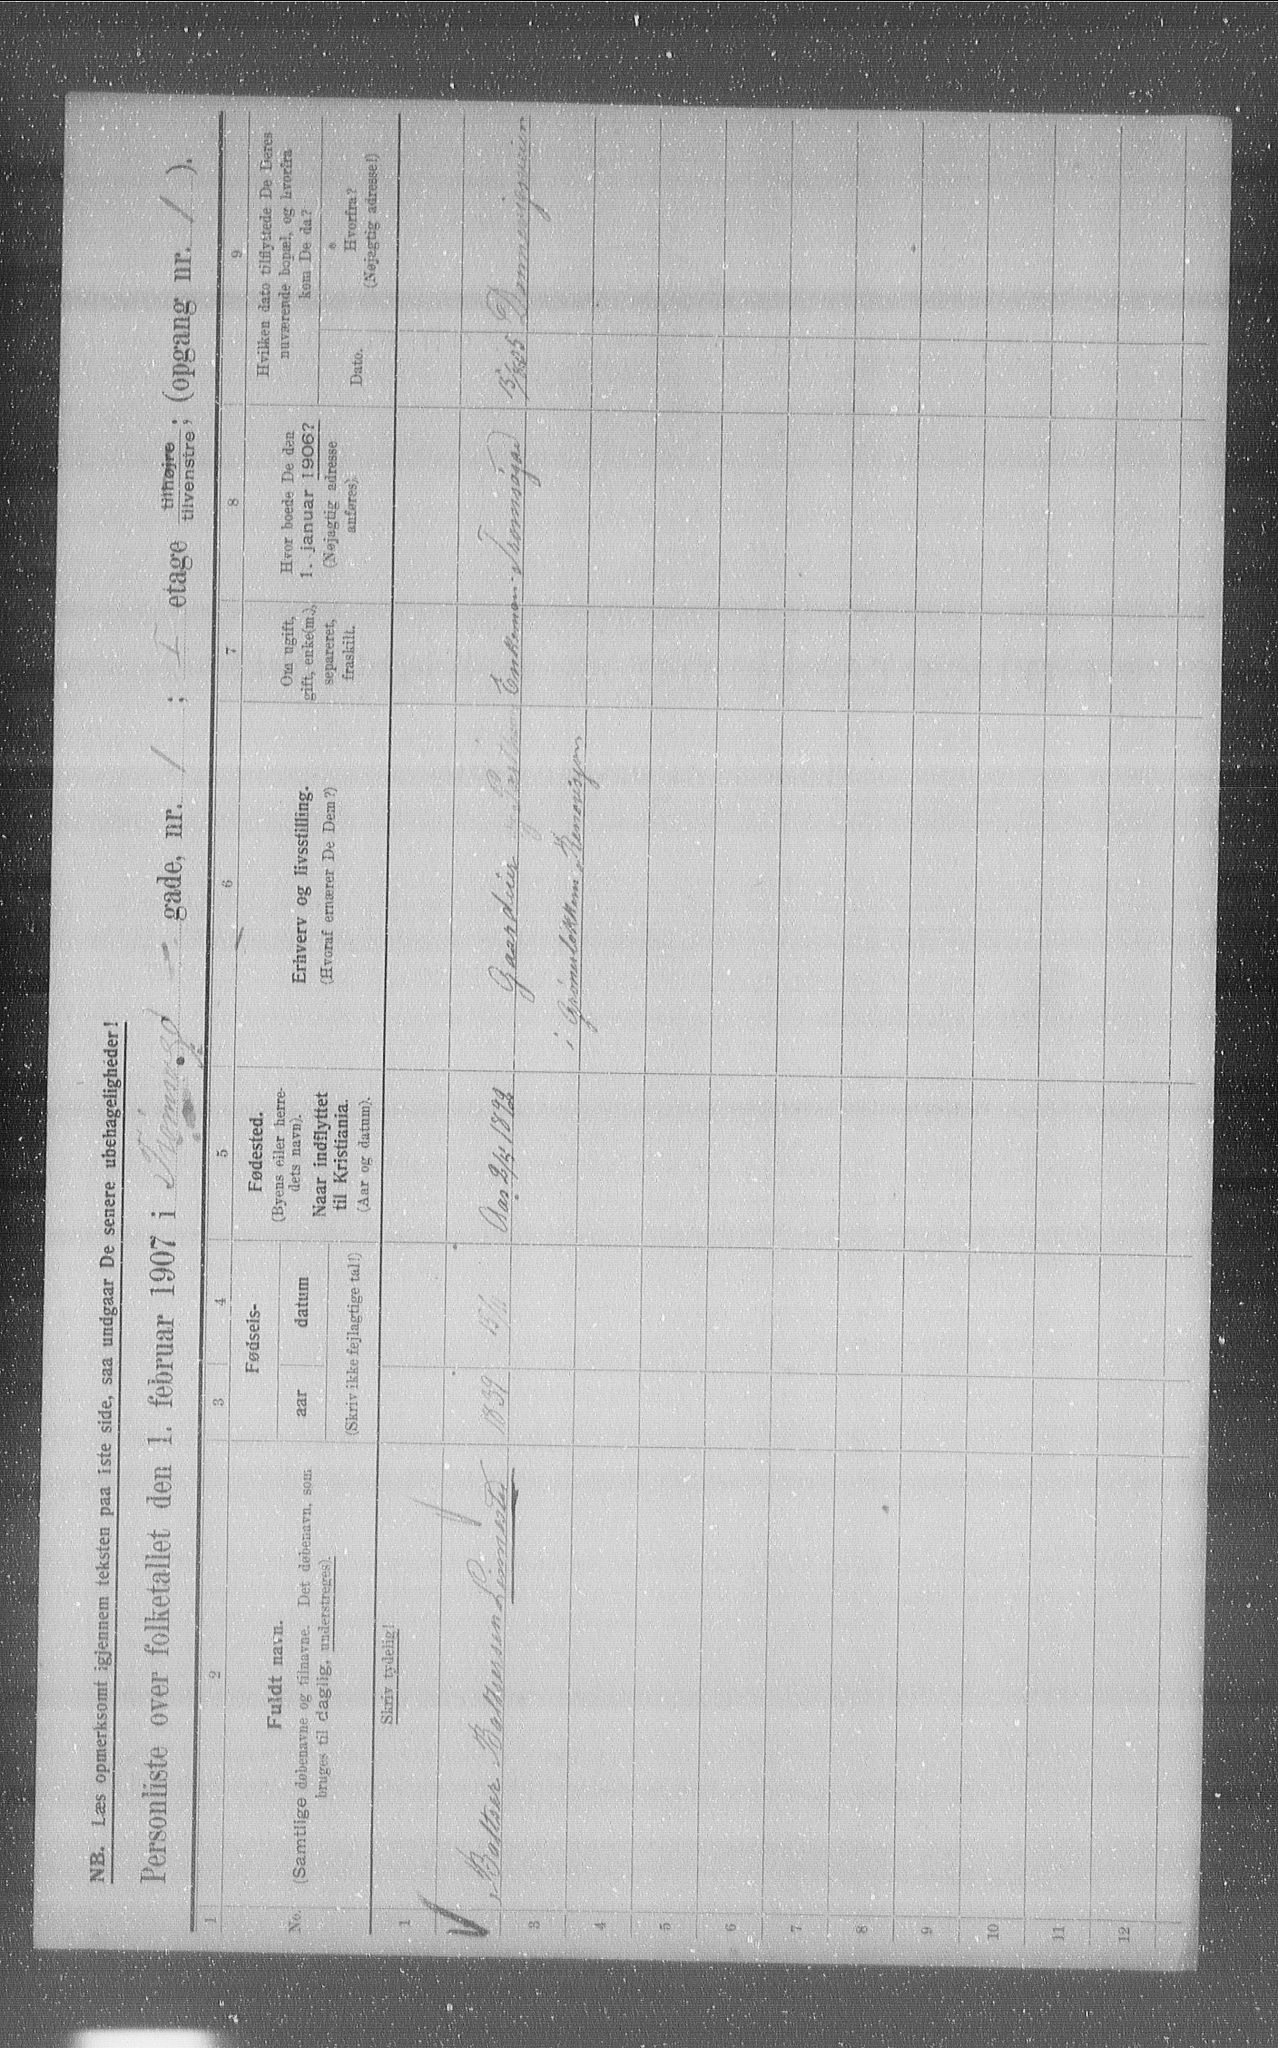 NB. Læs opmerksomt igjennem teksten paa 1ste side, saa undgaar De senere ubehageligheder!
Personliste over folketallet den 1. februar 1907 i Tromsø - gade, nr. 1 ; I etage tilhøjre tilvenstre ; (opgang nr. 1 ).
1 2 3 4 5 6 7 8 9
No.
Fuldt navn.
(Samtlige døbenavne og tilnavne. Det døbenavn, som
bruges til daglig, understreges).
Fødsels-
aar datum
(Skriv ikke fejlagtige tal!)
Fødested.
(Byens eller herre-
dets navn).
Naar indflyttet
til Kristiania.
(Aar og datum).
Erhverv og livsstilling.
(Hvoraf ernærer De Dem?)
Om ugift,
gift, enke(m.),
separeret,
fraskilt.
Hvor boede De den
1. januar 1906?
(Nøjagtig adresse
anføres).
Hvilken dato tilflyttede De Deres
nuværende bopæl, og hvorfra
kom De da?
Dato.
Hvorfra?
(Nøjagtig adresse!)
Skriv tydelig!
1
Baltser Baltsersen 1839 15/6 Aas Gaardeier Enkeman Tromsøgad
i Grünerløkken
3
4
5
6
7
8
9
10
11
12